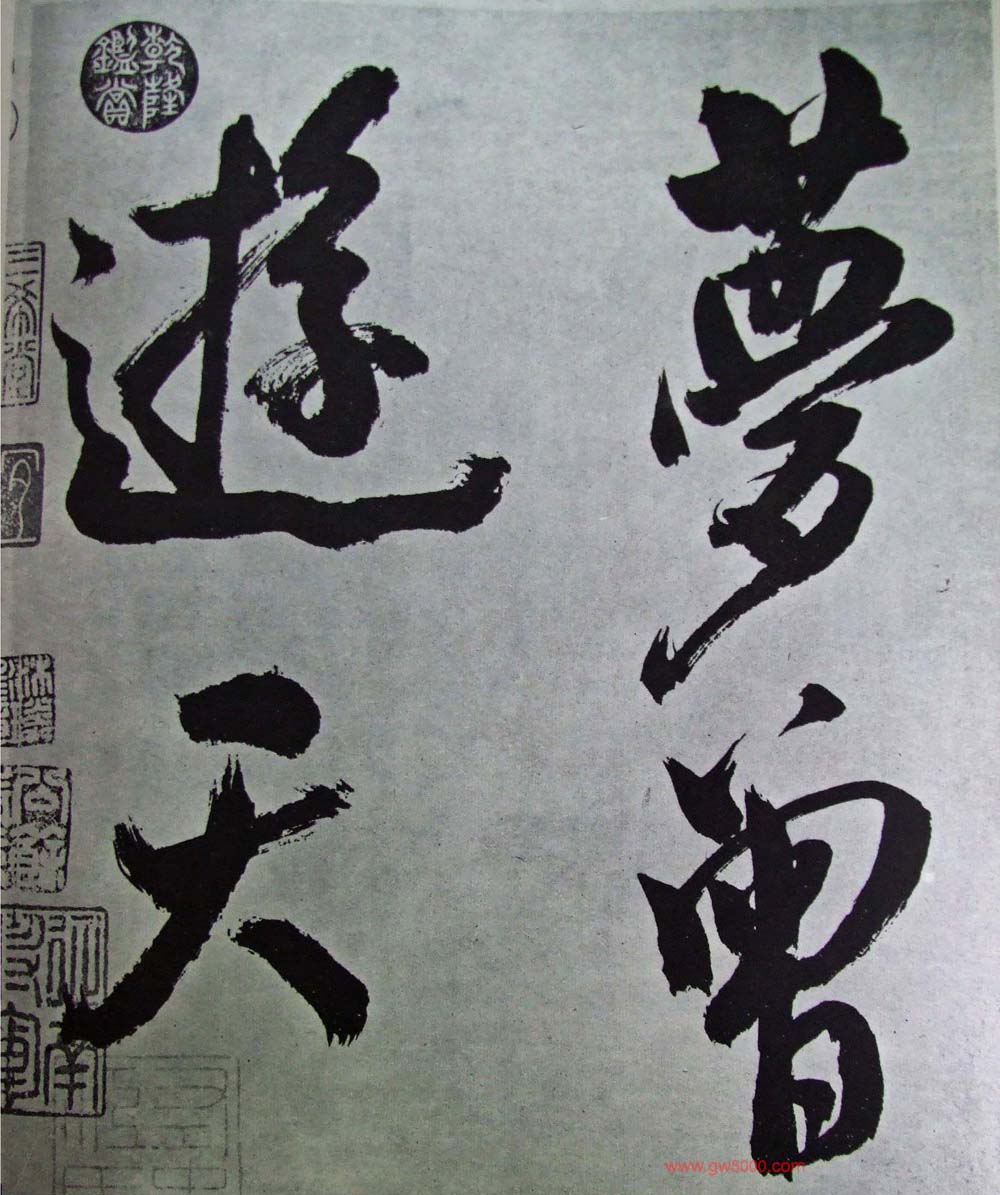 夢曾
遊天
乾隆
鑑賞
www.gw8000.com